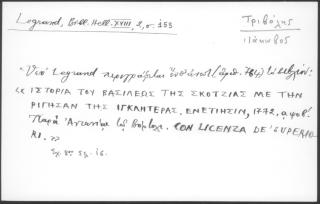 Legrand, Bibl. Hell. XVIII, 2, σ. 153
Τριβώλης
Ἰάκωβος
Ὑπὸ Legrand περιγράφεται ἐνθ' ἀνωτ. (ἀριθ. 784) τὸ βιβλίον:
« ΙΣΤΟΡΙΑ ΤΟΥ ΒΑΣΙΛΕΩΣ ΤΗΣ ΣΚΟΤΖΙΑΣ ΜΕ ΤΗΝ
ΡΙΓΗΣΑΝ ΤΗΣ ΙΓΚΛΗΤΕΡΑΣ. ΕΝΕΤΙΗΣΙΝ, 1772, αψοβ'.
Παρὰ Ἀντωνίῳ τῷ Βόρτολι. CON LICENZA DE' SUPERIO
RI. »
Σχ. 8ον σελ. 16.